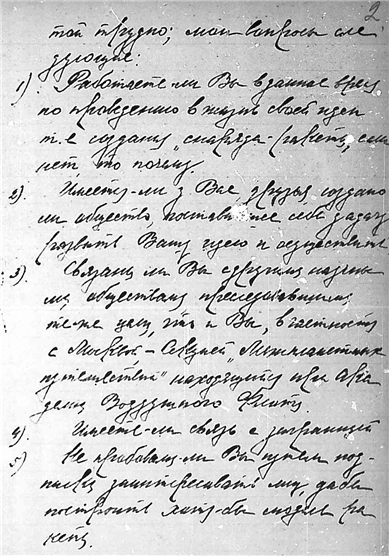 2
той трудно; мои вопросы сле-
дующие:
1) Работаете-ли Вы в данное время
по проведению в жизнь своей идеи
т.е. создания „снаряда-ракеты", если
нет, то почему.
2) Имеются-ли у Вас друзья, создано
ли общество поставившее себе задачу
развить Вашу идею и осуществить
3) Связаны ли Вы с другими научны-
ми обществами преследовавшими
те-же цели, что и Вы, в частности
с Москвой – Секцией „Межпланетных
путешествий" находящейся при Ака-
демии Воздушного Флота
4) Имеете-ли связь с заграницей
5) Не пробовали-ли Вы путем под-
писки заинтересовать лиц, дабы
построить хотя-бы модель ра-
кеты.